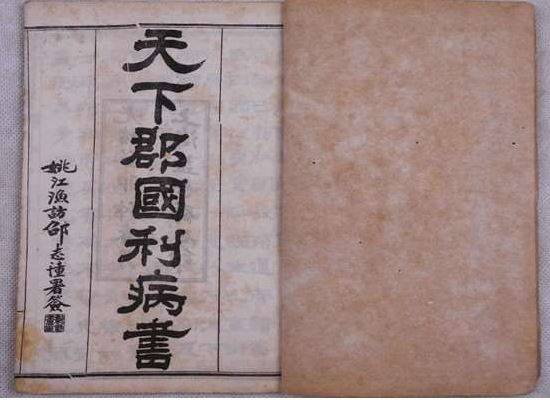 天下郡國利病書
姚江漁訪邵志㙯署簽